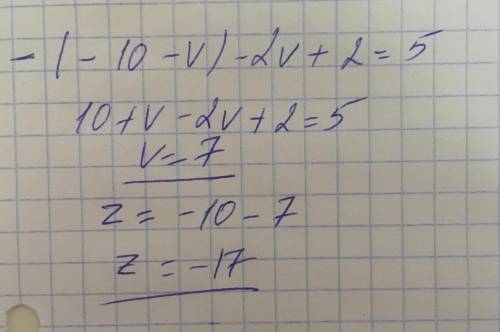 -(-10-v)-2v+2=5
10+v-2v+2=5
v=7
z=-10-7
z=-17